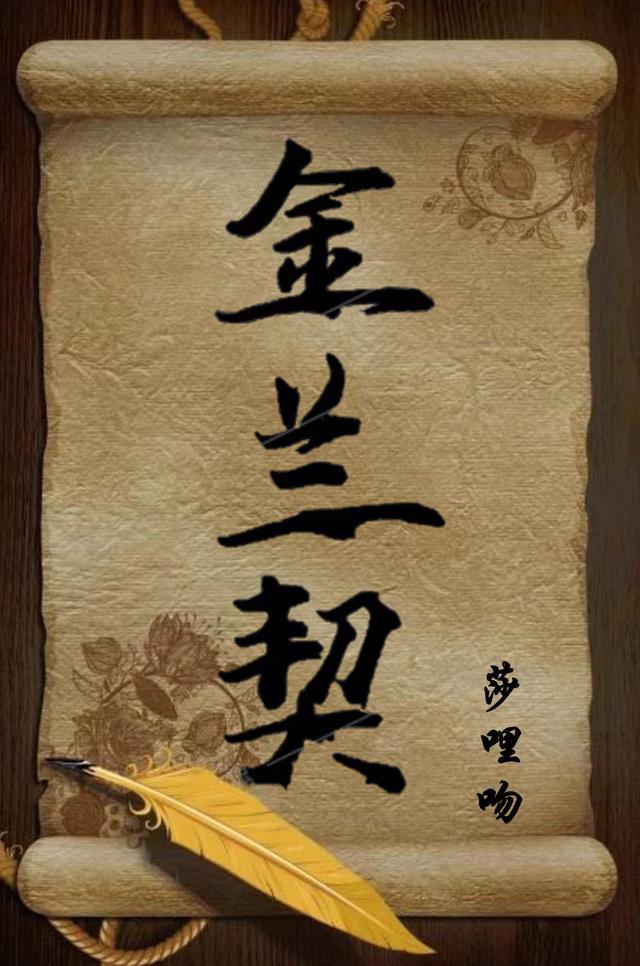 金兰契
莎哩吻